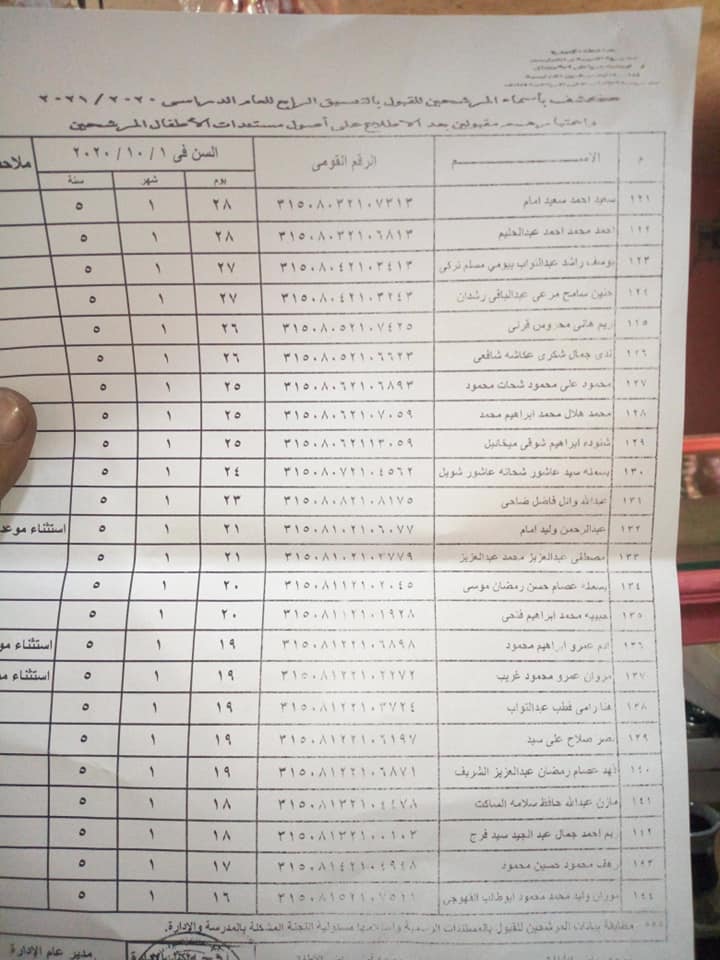 كشف بأسماء المرشحين للقبول بالتنسيق الرابع للعام الدراسى ٢٠٢٠ / ٢٠٢١
واعتبارهم مقبولين بعد الاطلاع على أصول مستندات الأطفال المرشحين
م الاســـم الرقم القومى السن فى ١ / ١٠ / ٢٠٢٠
يوم شهر سنة
١٢١ سعيد احمد سعيد امام ٣١٥٠٨٠٣٢١٠٧٣١٣ ٢٨ ١ ٥
١٢٢ احمد محمد احمد عبدالحليم ٣١٥٠٨٠٣٢١٠٦٨١٣ ٢٨ ١ ٥
١٢٣ يوسف راشد عبدالتواب بيومي مسلم تركى ٣١٥٠٨٠٤٢١٠٣٤١٣ ٢٧ ١ ٥
١٢٤ حنين سامح مرعى عبدالباقى رشدان ٣١٥٠٨٠٤٢١٠٣٢٤٣ ٢٧ ١ ٥
١٢٥ ريم هانى محروس قرنى ٣١٥٠٨٠٥٢١٠٧٤٢٥ ٢٦ ١ ٥
١٢٦ ندى جمال شكرى عكاشه شافعى ٣١٥٠٨٠٥٢١٠٦٦٢٣ ٢٦ ١ ٥
١٢٧ محمود على محمود شحات محمود ٣١٥٠٨٠٦٢١٠٦٨٩٣ ٢٥ ١ ٥
١٢٨ محمد هلال محمد ابراهيم محمد ٣١٥٠٨٠٦٢١٠٧٠٥٩ ٢٥ ١ ٥
١٢٩ شنوده ابراهيم شوقى ميخائيل ٣١٥٠٨٠٦٢١١٣٠٥٩ ٢٥ ١ ٥
١٣٠ بسمله سيد عاشور شحاته عاشور شويل ٣١٥٠٨٠٧٢١٠٤٥٦٢ ٢٤ ١ ٥
١٣١ عبدالله وائل فاضل ضاحى ٣١٥٠٨٠٨٢١٠٨١٧٥ ٢٣ ١ ٥
١٣٢ عبدالرحمن وليد امام ٣١٥٠٨١٠٢١٠٦٠٧٧ ٢١ ١ ٥ استثناء
١٣٣ مصطفى عبدالعزيز محمد عبدالعزيز ٣١٥٠٨١٠٢١٠٢٧٧٩ ٢١ ١ ٥
١٣٤ بسمله عصام حسن رمضان موسى ٣١٥٠٨١١٢١٠٢٠٤٥ ٢٠ ١ ٥
١٣٥ حبيبه محمد ابراهيم فتحى ٣١٥٠٨١١٢١٠١٩٢٨ ٢٠ ١ ٥
١٣٦ ادم عمرو ابراهيم محمود ٣١٥٠٨١٢٢١٠٦٨٩٨ ١٩ ١ ٥ استثناء
١٣٧ مروان عمرو محمود غريب ٣١٥٠٨١٢٢١٠٢٢٧٢ ١٩ ١ ٥ استثناء
١٣٨ هنا رامى قطب عبدالتواب ٣١٥٠٨١٢٢١٠٣٧٢٤ ١٩ ١ ٥
١٣٩ نصر صلاح على سيد ٣١٥٠٨١٢٢١٠٦١٩٧ ١٩ ١ ٥
١٤٠ فهد عصام رمضان عبدالعزيز الشريف ٣١٥٠٨١٢٢١٠٦٨٧١ ١٩ ١ ٥
١٤١ مازن عبدالله حافظ سلامه الساكت ٣١٥٠٨١٣٢١٠٤٤٧٨ ١٨ ١ ٥
١٤٢ ريم احمد جمال عبد الجيد سيد فرج ٣١٥٠٨١٣٢١٠٠١٠٣ ١٨ ١ ٥
١٤٣ رهف محمود حسين محمود ٣١٥٠٨١٤٢١٠٤٩٤٨ ١٧ ١ ٥
١٤٤ نوران وليد محمد محمود ابوطالب القهوجى ١٦ ١ ٥
مطابقة بيانات المرشحين للقبول بالمستندات الرسمية واستلامها مسئولية اللجنة المشكلة بالمدرسة والإدارة.
مدير عام الإدارة